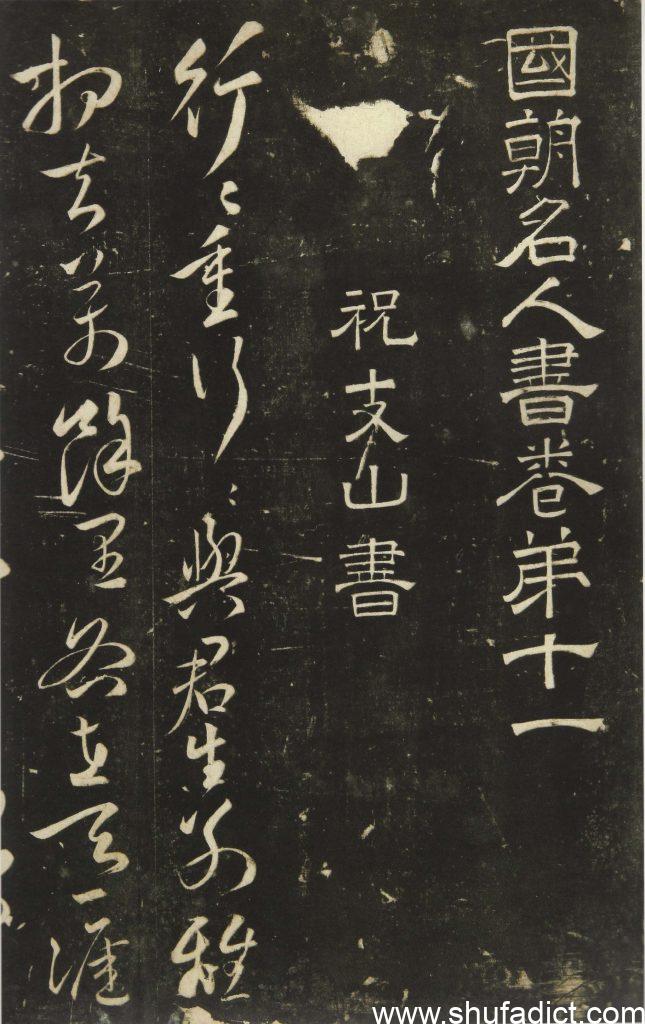 國朝名人書卷弟十一
祝支山書
行〻重行〻與君生別離
相去萬餘里各在天一涯
www.shufadict.com